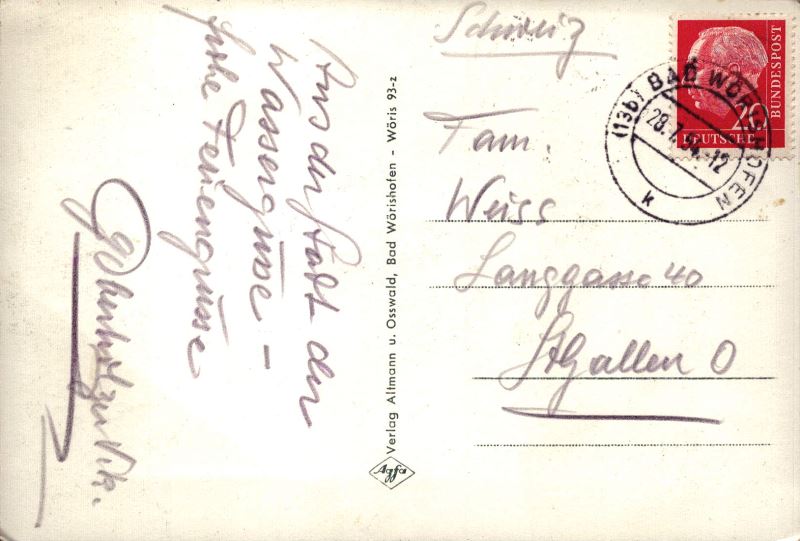 Aus der Stadt der
Wassergüsse –
frohe Feriengrüsse
Verlag Altmann u. Osswald, Bad Wörishofen - Wöris 93-z
Agfa
Schweiz
Fam.
Weiss
Langgasse 40
St Gallen O
(13b) BAD WÖRISHOFEN
28.7.54.-12
k
20
DEUTSCHE
BUNDESPOST